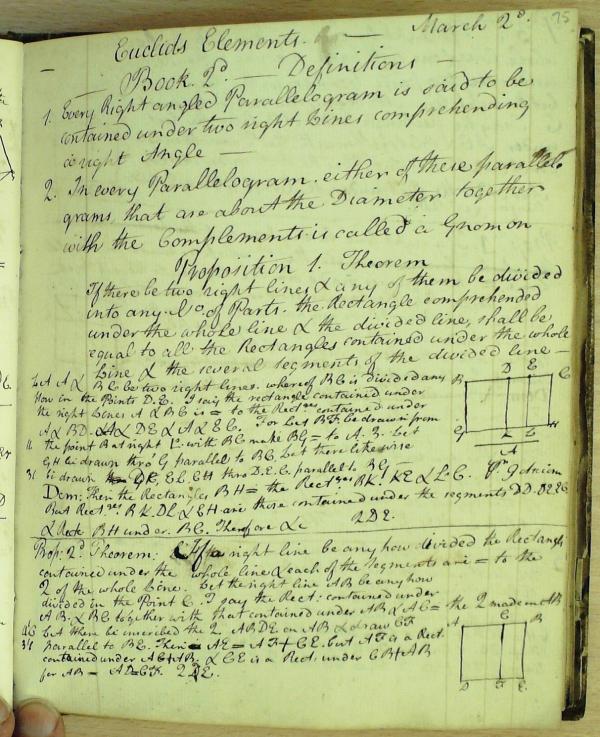 75
Euclids Elements. — March 2d.
Book. 2d. — Definitions —
1. Every Right angled Parallelogram is said to be
contained under two right Lines comprehending
a right Angle —
2. In every Parallelogram. either of these parallelo
grams that are about the Diameter together
with the Complements is called a Gnomon
Proposition 1. Theorem
If there be two right lines & any of them be divided
into any No. of Parts. the Rectangle comprehended
under the whole line & the divided line, shall be
equal to all the Rectangles contained under the whole
Line & the several segments of the divided line —
Let A & BC be two right lines. whereof BC is divided any
how in the Points D.E. I say the rectangle contained under
the right Lines A & BC is = to the Rectgles contained under
A & BD. A & DE & A & EC. For Let BF be drawn from
11. the point B at right Ls with BC make BG = to A. 3. Let
GH be drawn thro' G parallel to BC, but there likewise
31. be drawn thro D.E.C. parallel to BG —
Dem: Then the Rectangles BH = the Rectgles BK. KE & LC.
But Rectgles BK. DL & EH are those contained under the segments
& Rect BH under BC. Therefore &c 2 D E.
B D E C
G K L H
A
Prop: 2d. Theorem: If a right line be any how divided the Rectangles
contained under the whole line & each of the segments are = to the
2 of the whole Line. Let the right line AB be any how
divided in the Point C. I say the Rect: contained under
AB. & BC together with that contained under AB & AC = the 2 made on AB
Let there be inscribed the 2 ABDE on AB & draw CF
31. parallel to BE. Then AE = AF + CE. but AF is a Rect.
contained under AC & AB. & CE is a Rect: under CB & AB
for AB = AD = CF. 2 D E.
A C B
D F E